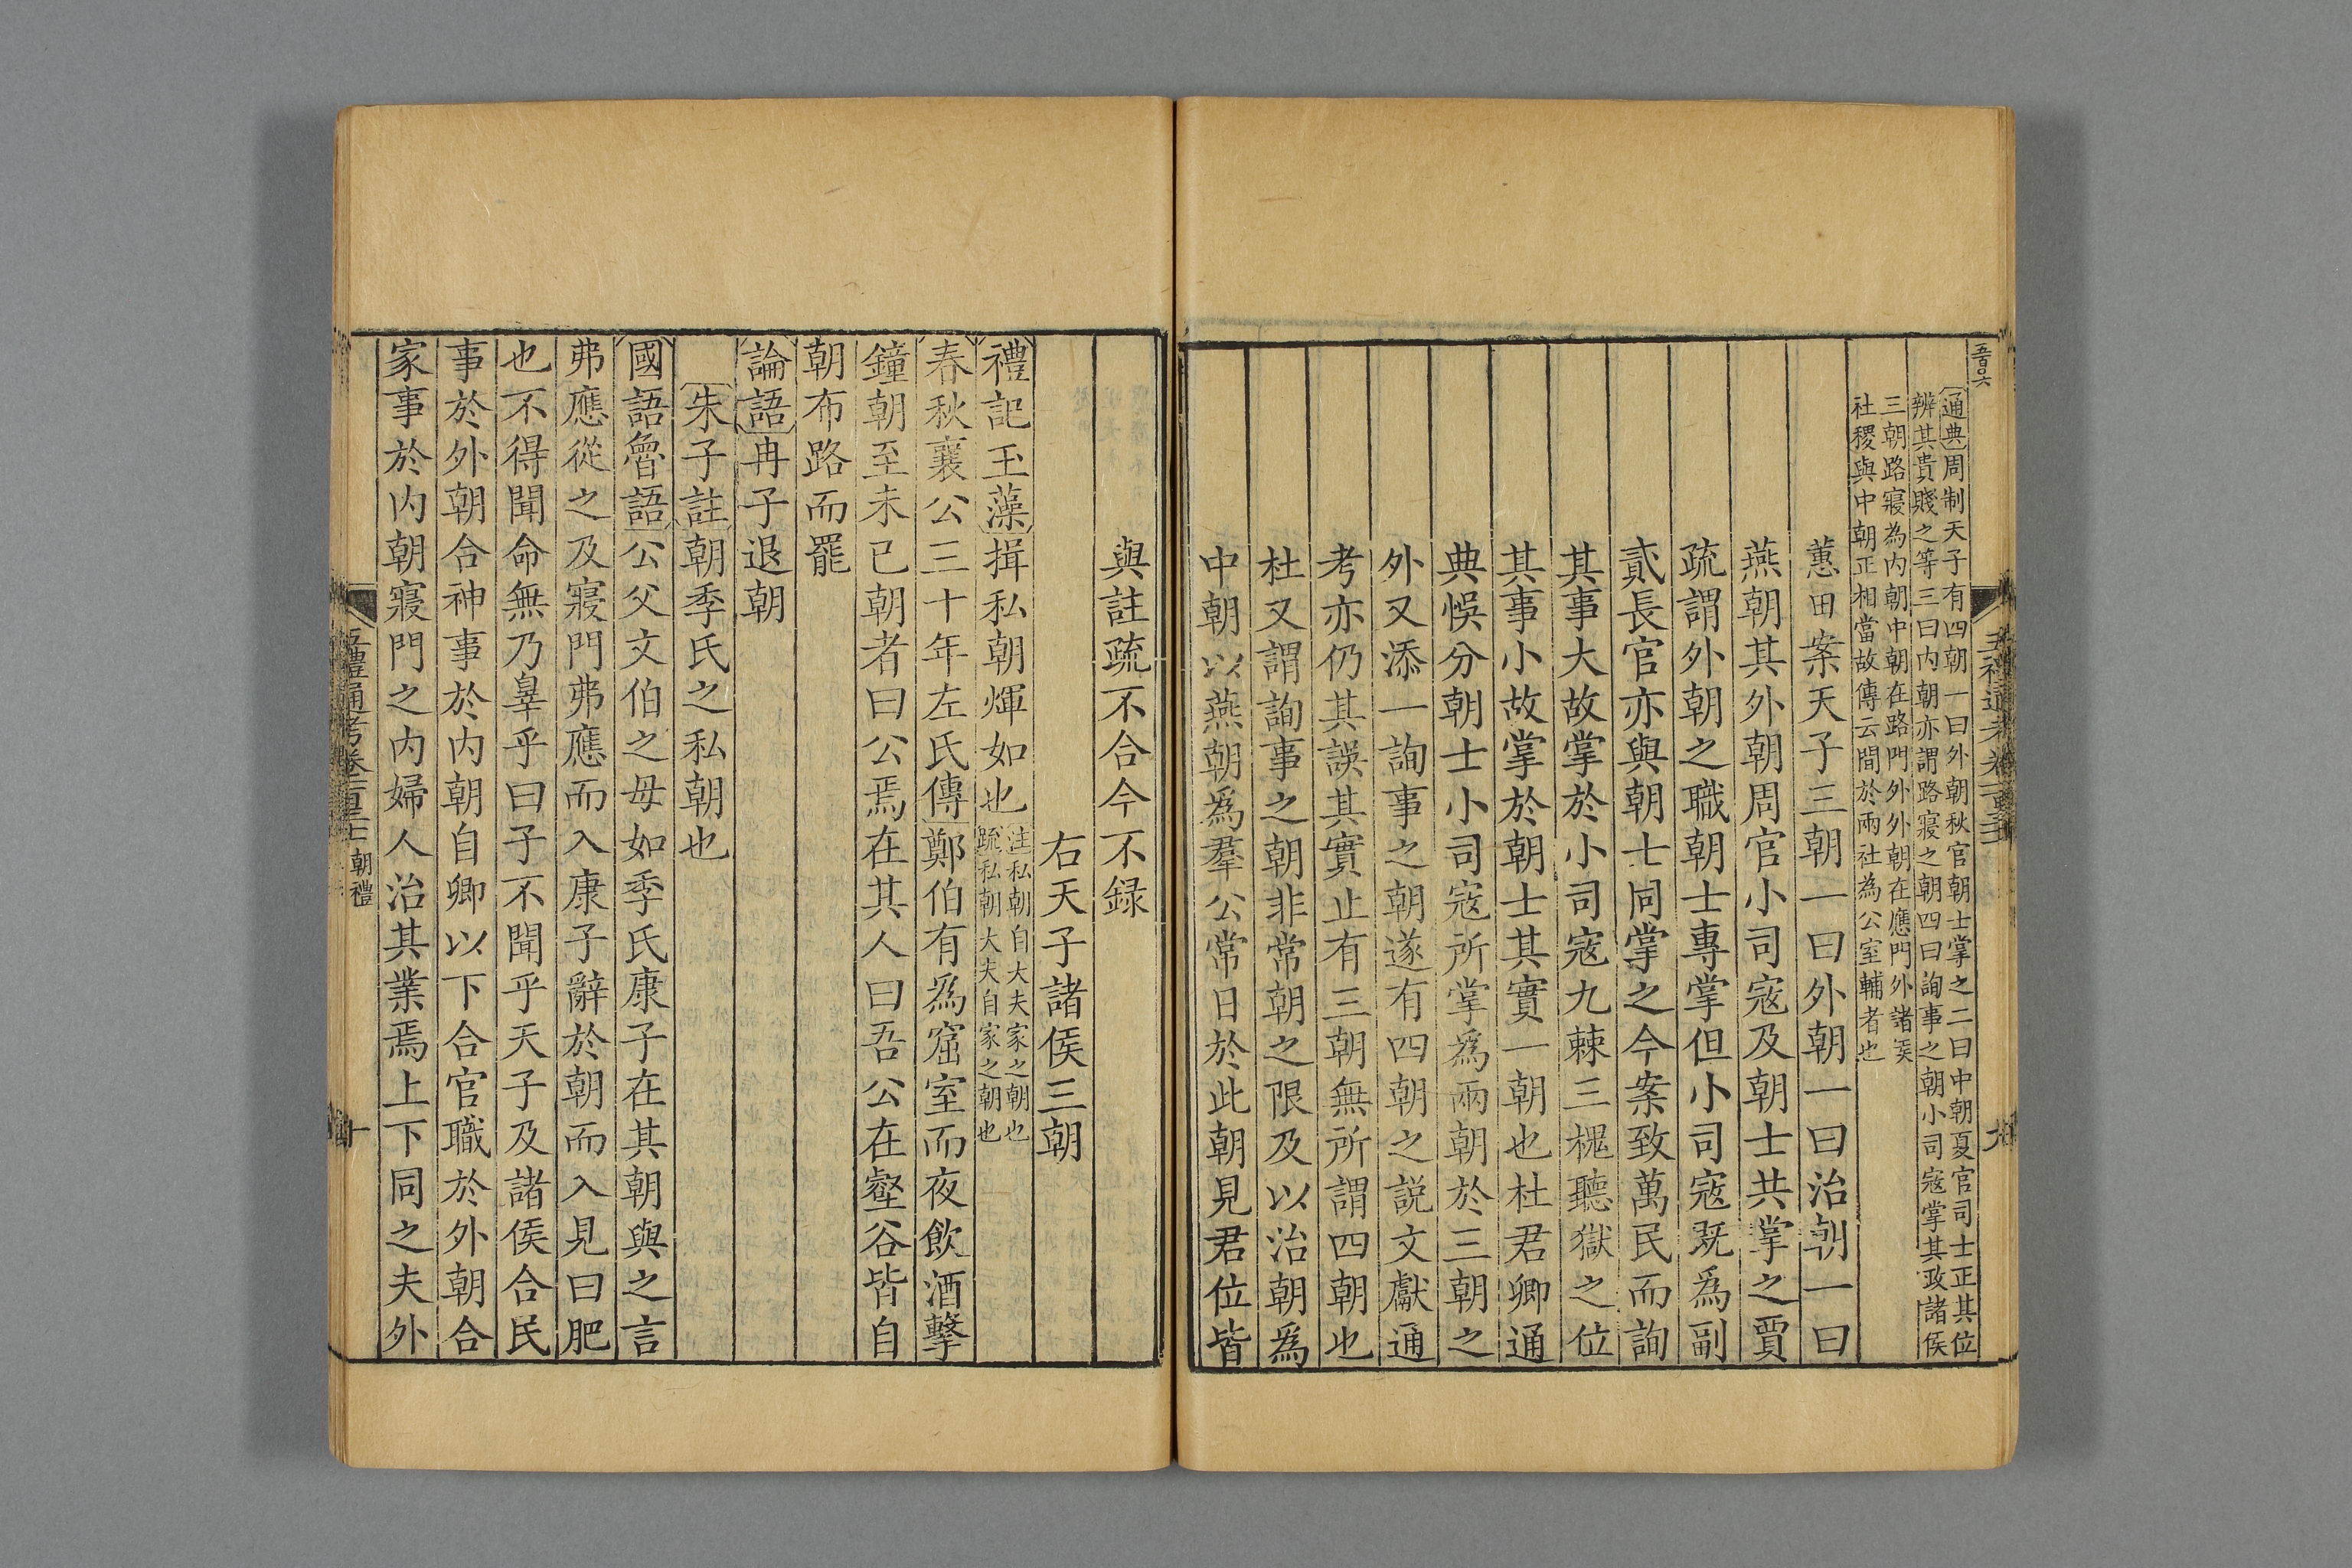 五百〇六
通典周制天子有四朝一曰外朝秋官朝士掌之二曰中朝夏官司士正其位
辨其貴賤之等三曰内朝亦謂路寢之朝四曰詢事之朝小司寇掌其政諸侯
三朝路寢為内朝中朝在路門外外朝在應門外諸侯
社稷與中朝正相當故傳云間於兩社為公室輔者也
蕙田案天子三朝一曰外朝一曰治朝一曰
燕朝其外朝周官小司寇及朝士共掌之賈
疏謂外朝之職朝士專掌但小司寇既爲副
貳長官亦與朝士同掌之今案致萬民而詢
其事大故掌於小司寇九棘三槐聽獄之位
其事小故掌於朝士其實一朝也杜君卿通
典悞分朝士小司寇所掌爲兩朝於三朝之
外又添一詢事之朝遂有四朝之説文獻通
考亦仍其誤其實止有三朝無所謂四朝也
杜又謂詢事之朝非常朝之限及以治朝爲
中朝以燕朝爲羣公常日於此朝見君位皆
與註疏不合今不録
右天子諸侯三朝
禮記玉藻揖私朝煇如也
注私朝自大夫家之朝也
疏私朝大夫自家之朝也
春秋襄公三十年左氏傳鄭伯有爲窟室而夜飲酒擊
鐘朝至未已朝者曰公焉在其人曰吾公在壑谷皆自
朝布路而罷
論語冉子退朝
朱子註朝季氏之私朝也
國語魯語公父文伯之母如季氏康子在其朝與之言
弗應從之及寢門弗應而入康子辭於朝而入見曰肥
也不得聞命無乃辠乎曰子不聞乎天子及諸侯合民
事於外朝合神事於内朝自卿以下合官職於外朝合
家事於内朝寢門之内婦人治其業焉上下同之夫外
五禮通考卷 朝禮
十